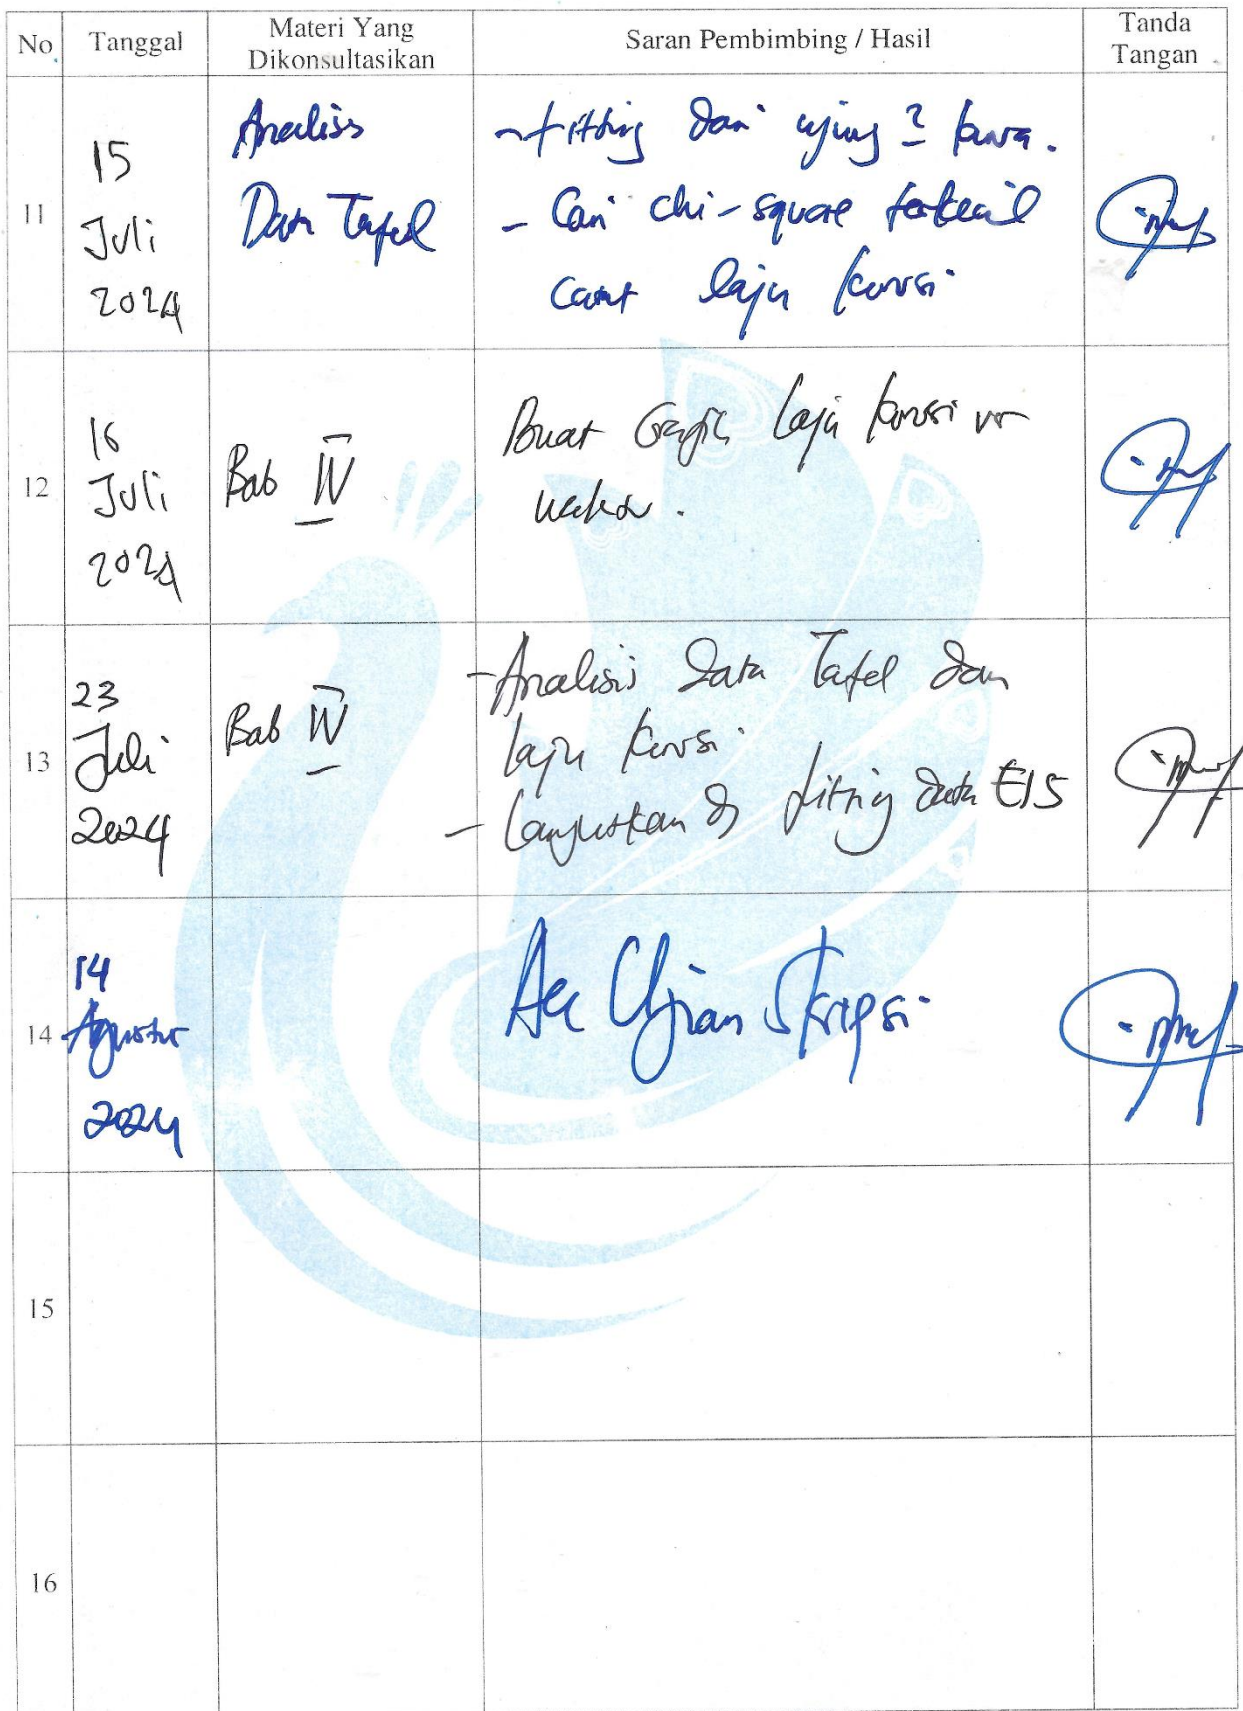 No Tanggal Materi Yang Dikonsultasikan Saran Pembimbing / Hasil Tanda Tangan
11
15
Juli
2024
Analisis
Data Tafel
- fitting dari ujung 2 kurva.
- Cari chi-square terkecil
catat laju korosi
12
16
Juli
2024
Bab IV
Buat Grafik laju korosi vs
waktu.
13
23
Juli
2024
Bab IV
- Analisis Data Tafel dan
laju korosi
- Lanjutkan dg fitting data EIS
14
14
Agustus
2024
Acc Ujian Skripsi
15
16